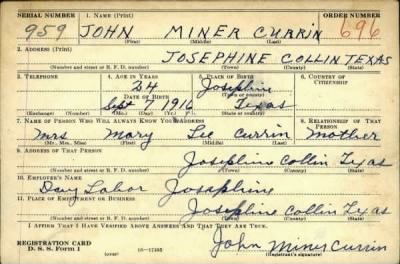 SERIAL NUMBER 1. NAME (Print) ORDER NUMBER
959 JOHN MINER CURRIN 696
(First) (Middle) (Last)
2. ADDRESS (Print)
JOSEPHINE COLLIN TEXAS
(Number and street or R. F. D. number) (Town) (County) (State)
3. TELEPHONE 4. AGE IN YEARS 5. PLACE OF BIRTH 6. COUNTRY OF CITIZENSHIP
24 Josephine
DATE OF BIRTH (Town or county)
Sept 7 1916 Texas
(Exchange) (Number) (Mo.) (Day) (Yr.) (State or country)
7. NAME OF PERSON WHO WILL ALWAYS KNOW YOUR ADDRESS 8. RELATIONSHIP OF THAT PERSON
Mrs Mary Lee Currin Mother
(Mr., Mrs., Miss) (First) (Middle) (Last)
9. ADDRESS OF THAT PERSON
Josephine Collin Texas
(Number and street or R. F. D. number) (Town) (County) (State)
10. EMPLOYER'S NAME
Day Labor Josephine
11. PLACE OF EMPLOYMENT OR BUSINESS
Josephine Collin Texas
(Number and street or R. F. D. number) (Town) (County) (State)
I AFFIRM THAT I HAVE VERIFIED ABOVE ANSWERS AND THAT THEY ARE TRUE.
REGISTRATION CARD John Miner Currin
D. S. S. Form 1 (over) (Registrant's signature)